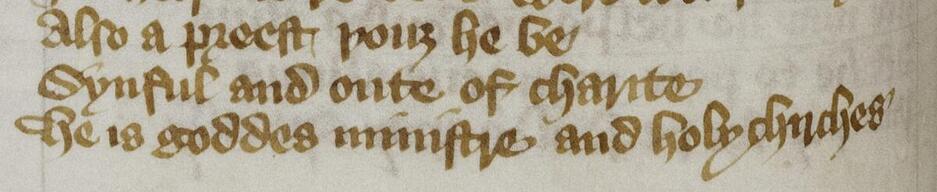 Also a preest þouȝ he be
Synful and oute of charite
He is goddes ministre and holy chirches